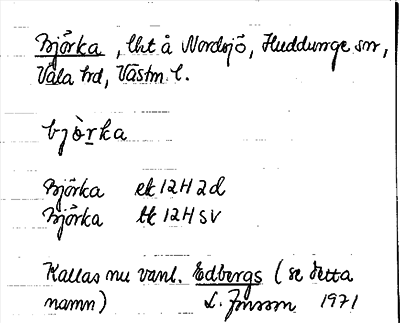 Björka, lht å Nordsjö, Huddunge sn,
Våla hd, Västm. l.
bjò̀rka
Björka ek 12H2d
Björka tk 12H SV
Kallas nu vanl. Edbergs (se detta
namn) L. Jonsson 1971